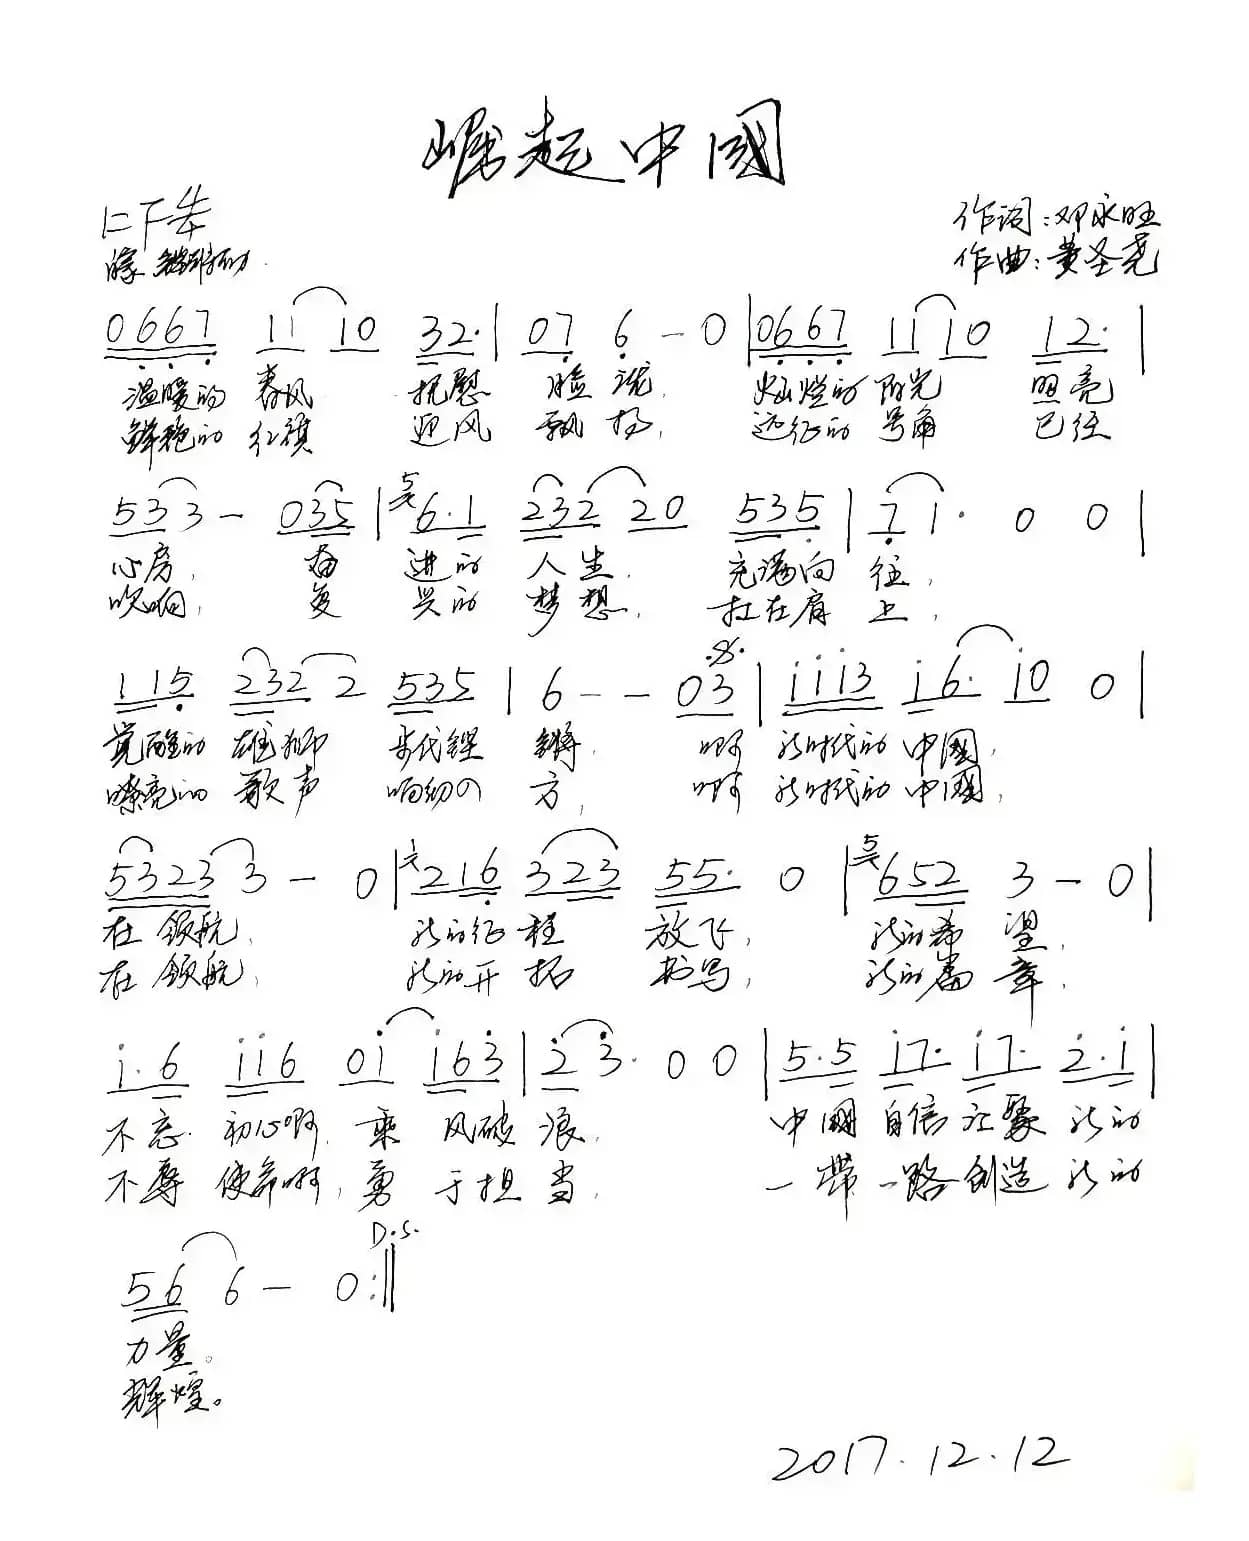 崛起中國
作词:邓永旺
作曲:黄圣尧
0667 11 10 32· | 07 6 - 0 | 0667 11 10 12· |
温暖的 春风 抚慰 脸 灿烂的 阳光 照亮
鲜艳的 红旗 迎风 飘扬, 远征的 号角 已经
533 - 035 | 6·1 232 20 535 | 7 1· 0 0 |
心房, 奋 进的 人生, 充满向 往,
吹响, 复 兴的 梦想, 扛在肩 上,
115 232 2 535 | 6 - - 03 | 1113 1 6· 10 0 |
觉醒的 雄狮 步伐铿 锵, 啊 新时代的 中国,
嘹亮的 歌声 响彻四 方, 啊 新时代的 中國,
5323 3 - 0 | 216 323 55· 0 | 652 3 - 0 |
在 领航, 新的征程 放飞, 新的希 望,
在 领航, 新的开拓 书写, 新的篇 章,
1·6 116 01 163 | 2 3· 0 0 | 5·5 17· 17· 2·1 |
不忘 初心啊, 乘 风破 浪, 中國 自信 汇聚 新的
不辱 使命啊, 勇 于担 当, 一带 一路 创造 新的
D.S.
56 6 - 0 :||
力量。
辉煌。
2017.12.12